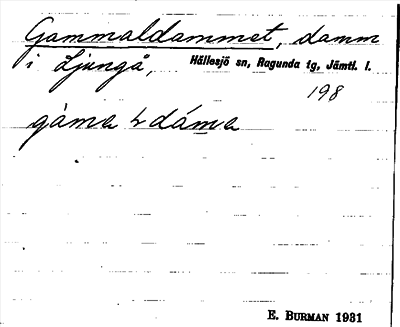 Gammaldammet, damm
i Ljungå, Hällesjö sn, Ragunda tg, Jämtl. l.
198
gàma dáma
E. BURMAN 1931